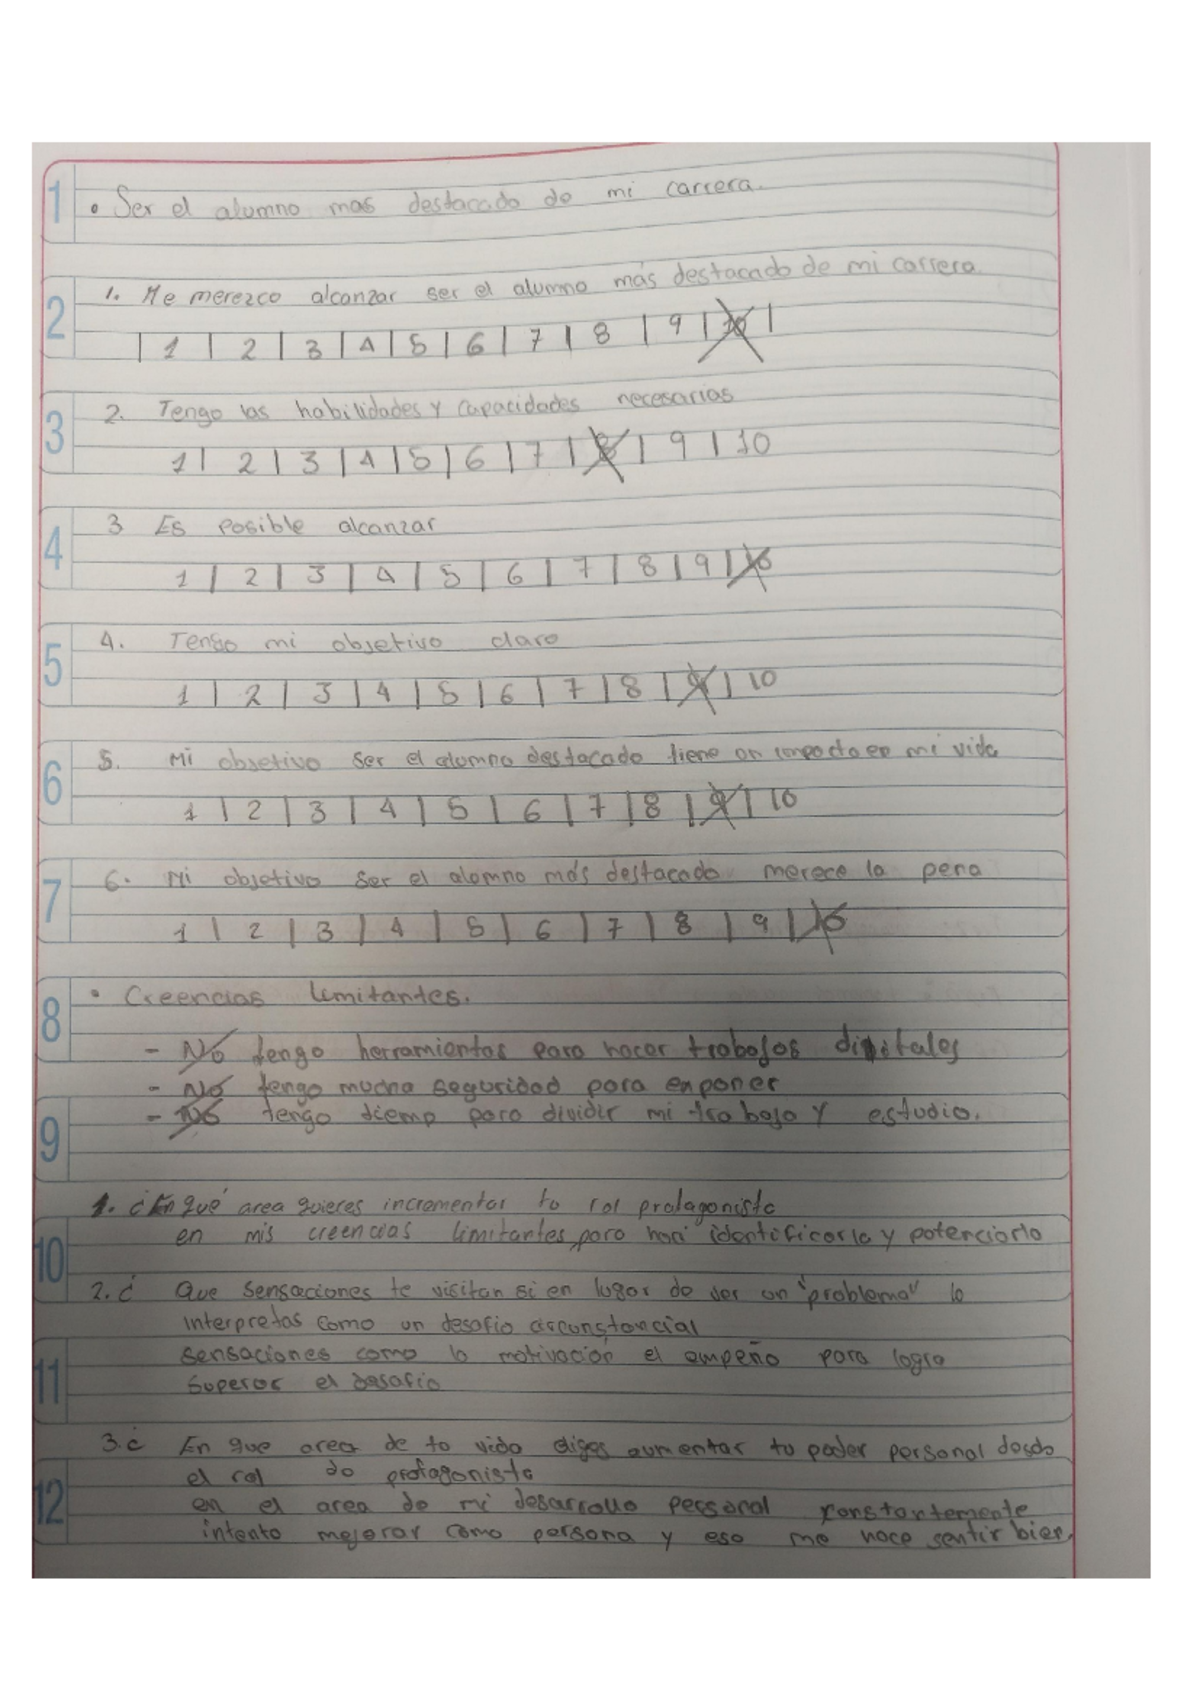 1 • Ser el alumno mas destacado de mi carrera.
2 1. Me merezco alcanzar ser el alumno más destacado de mi carrera
| 1 | 2 | 3 | 4 | 5 | 6 | 7 | 8 | 9 | 10 |
3 2. Tengo las habilidades y capacidades necesarias
1 | 2 | 3 | 4 | 5 | 6 | 7 | 8 | 9 | 10
4 3 Es posible alcanzar
1 | 2 | 3 | 4 | 5 | 6 | 7 | 8 | 9 | 10
5 4. Tengo mi objetivo claro
1 | 2 | 3 | 4 | 5 | 6 | 7 | 8 | 9 | 10
6 5. Mi objetivo ser el alumno destacado tiene un impacto en mi vida
1 | 2 | 3 | 4 | 5 | 6 | 7 | 8 | 9 | 10
7 6. Mi objetivo ser el alumno más destacado merece la pena
1 | 2 | 3 | 4 | 5 | 6 | 7 | 8 | 9 | 10
8 • Creencias limitantes.
- No tengo herramientas para hacer trabajos digitales
- No tengo mucha seguridad para exponer
9 - No tengo tiemp para dividir mi trabajo y estudio.
1. ¿En qué area quieres incrementar tu rol protagonista
10 en mis creencias limitantes, para identificarla y potenciarlo
2. ¿ Que sensaciones te visitan si en lugar de ver un "problema" lo
interpretas como un desafio circunstancial
11 sensaciones como la motivación el empeño para logra
superar el desafio
3. ¿ En que area de tu vida eliges aumentar tu poder personal desde
el rol de protagonista
12 en el area de mi desarrollo personal constantemente
intento mejorar como persona y eso me hace sentir bien.